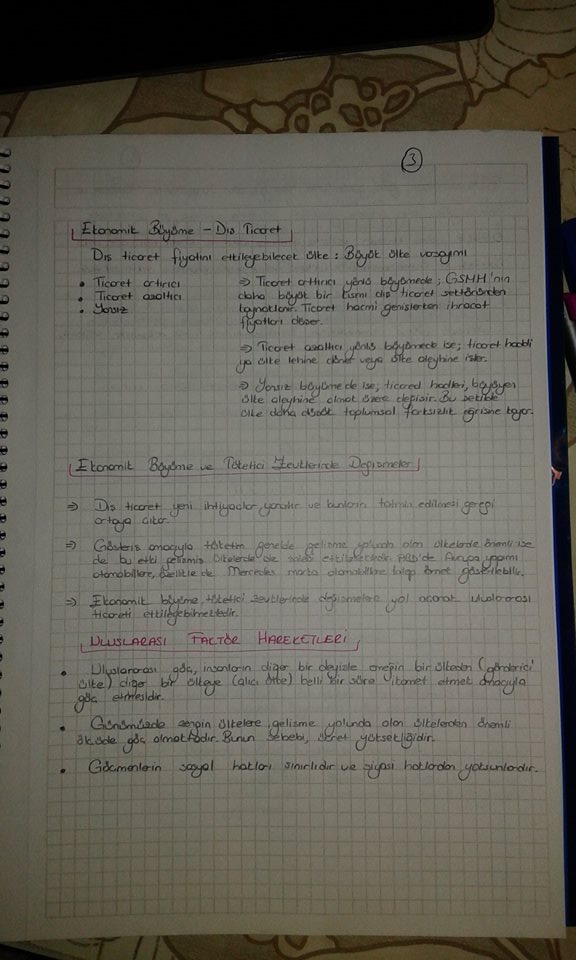 3
Ekonomik Büyüme - Dış Ticaret
Dış ticaret fiyatını etkileyebilecek ülke : Büyük ülke varsayımı
• Ticaret artırıcı
• Ticaret azaltıcı
• Yansız
⇒ Ticaret arttırıcı yönlü büyümede ; GSMH'nin
daha büyük bir kısmı dış ticaret sektöründen
kaynaklanır. Ticaret hacmi genişlerken ihracat
fiyatları düşer.
⇒ Ticaret azaltıcı yönlü büyümede ise; ticaret haddi
ya ülke lehine döner veya ülke aleyhine işler.
⇒ Yansız büyümede ise, ticared hadleri, büyüyen
ülke aleyhine olmak üzere değişir. Bu şekilde
ülke daha düşük toplumsal farksızlık eğrisine kayar.
Ekonomik Büyüme ve Tüketici Zevklerinde Değişmeler
⇒ Dış ticaret yeni ihtiyaçlar yaratır ve bunların tatmin edilmesi gereği
ortaya çıkar.
⇒ Gösteriş amacıyla tüketim genelde gelişme yolunda olan ülkelerde önemli ise
de bu etki gelişmiş ülkelerde de söz etkilidir. ABD'de Avrupa yapımı
otomobillere, özellikle de Mercedes marka otomobillere talep örnek gösterilebilir.
⇒ Ekonomik büyüme tüketici zevklerinde değişmelere yol açarak uluslararası
ticareti etkileyebilmektedir.
ULUSLARASI FACTÖR HAREKETLERİ
• Uluslararası göç, insanların diğer bir deyişle emeğin bir ülkeden (gönderici
ülke) diğer bir ülkeye (alıcı ülke) belli bir süre ikamet etmek amacıyla
göç etmesidir.
• Günümüzde zengin ülkelere, gelişme yolunda olan ülkelerden önemli
ölçüde göç olmaktadır. Bunun sebebi, ücret yüksekliğidir.
• Göçmenlerin sosyal hakları sınırlıdır ve siyasi haklardan yoksunlardır.